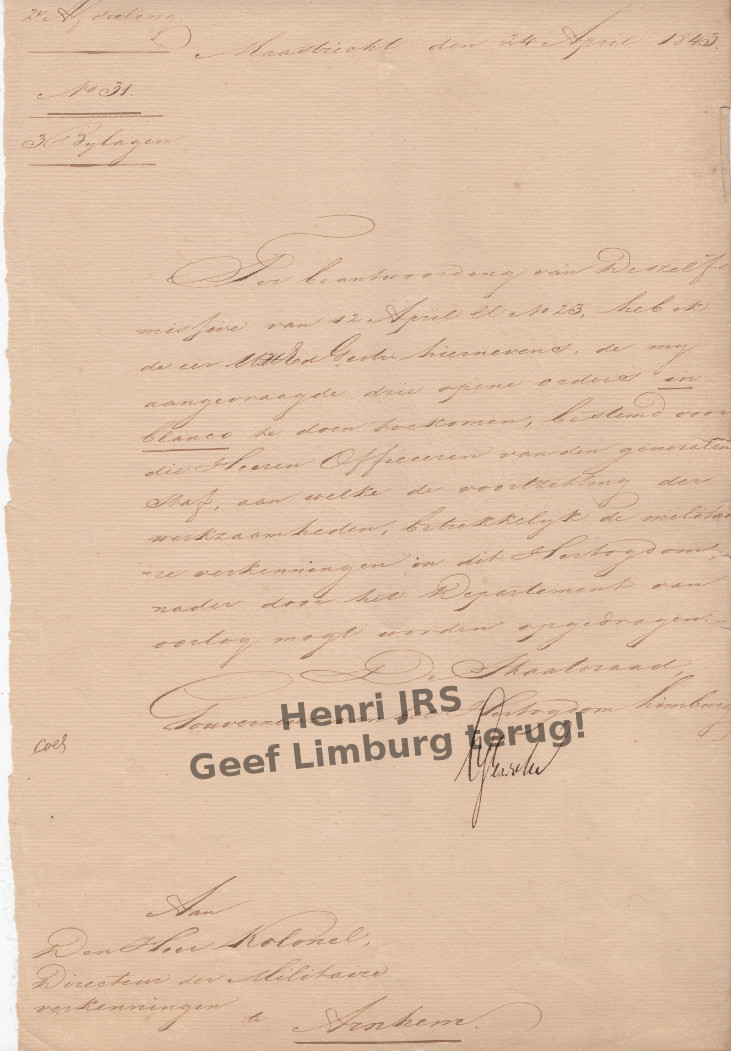 2e Afdeeling.
Maastricht den 24 April 1843.
No 31.
3 Bylagen
Ter beantwoording van Deszelfs
missive van 12 April ll No 23, heb ik
de eer UHEd Gestr. hiernevens, de my
aangevraagde drie opene orders in
blanco te doen toekomen, bestemd voor
die Heeren Officieren van den generalen
Staf, aan welke de voortzetting der
werkzaamheden, betrekkelyk de militai
-re verkenningen in dit Hertogdom,
nader door het Departement van
oorlog mogt worden opgedragen.
De Staatsraad,
Gouverneur van het Hertogdom Limburg
Henri JRS
Geef Limburg terug!
coll
Aan
Den Heer Kolonel,
Directeur der Militaire
verkenningen
te Arnhem.